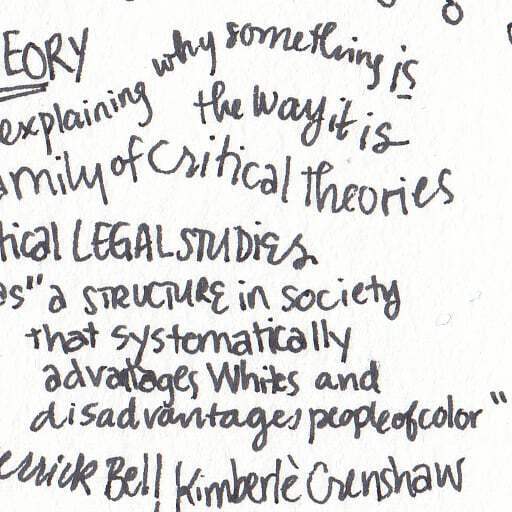 EORY
why something is
explaining the way it is
amily of Critical Theories
tical LEGAL STUDIES
as "a STRUCTURE in society
that systematically
advantages Whites and
disadvantages people of color"
errick Bell Kimberlè Crenshaw